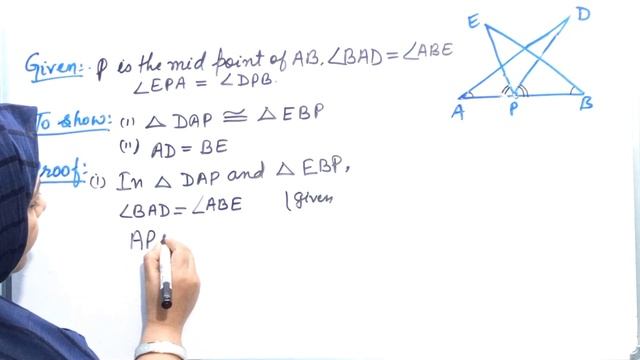 Given:- P is the mid point of AB, ∠BAD = ∠ABE
∠EPA = ∠DPB.
To show: (i) △ DAP ≅ △ EBP
(ii) AD = BE
Proof: (i) In △ DAP and △ EBP,
∠BAD = ∠ABE | given
AP
E
D
A
P
B